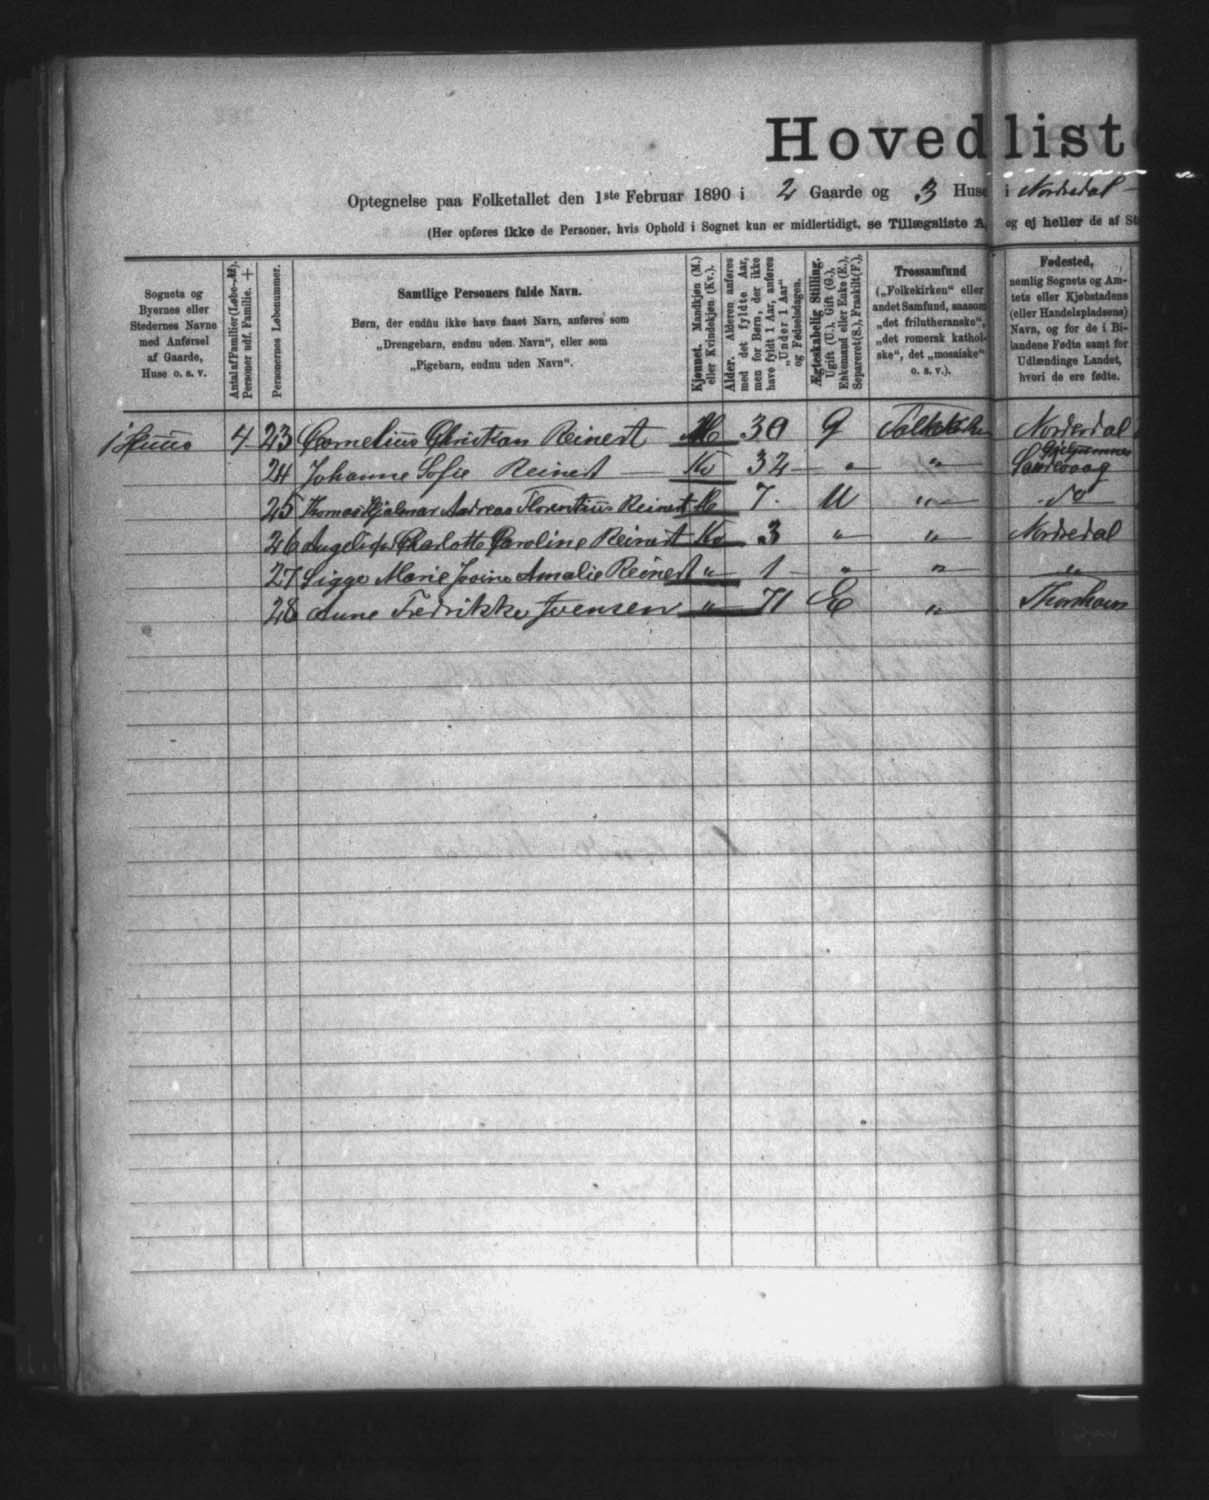 Hovedliste
Optegnelse paa Folketallet den 1ste Februar 1890 i 2 Gaarde og 3 Huse i Norderdal
(Her opføres ikke de Personer, hvis Ophold i Sognet kun er midlertidigt, se Tillægsliste A, og ej heller de af
Sognets og
Byernes eller
Stedernes Navne
med Anførsel
af Gaarde,
Huse o. s. v.
Antal af Familier (Løbe-№).
Personer udf. Familie. +
Personernes Løbenummer.
Samtlige Personers fulde Navn.
Børn, der endnu ikke have faaet Navn, anføres som
„Drengebarn, endnu uden Navn", eller som
„Pigebarn, endnu uden Navn".
Kjønnet. Mandkjøn (M.)
eller Kvindekjøn (Kv.).
Alder. Alderen anføres
med det fyldte Aar,
men for Børn, der ikke
have fyldt 1 Aar, anføres
„Under 1 Aar"
og Fødselsdagen.
Ægteskabelig Stilling.
Ugift (U.), Gift (G.),
Enkemand eller Enke (E.),
Separeret (S.), Fraskilt (F.).
Trossamfund
(„Folkekirken" eller
andet Samfund, saasom
„det frilutheranske",
„det romersk kathol-
ske", det „mosaiske"
o. s. v.).
Fødested,
nemlig Sognets og Am-
tets eller Kjøbstadens
(eller Handelspladsens)
Navn, og for de i Bi-
landene Fødte samt for
Udlændinge Landet,
hvori de ere fødte.
1 Huus 4 23 Cornelius Christian Reinert M 30 G Folkekirken Norderdal
24 Johanne Sofie Reinert Kv 32 „ „ Sandevaag
25 Thomas Hjalmar Andreas Florentius Reinert M 7 U „ do
26 Charlotte Caroline Reinert Kv 3 „ „ Norderdal
27 Sigga Marie Amalie Reinert „ 1 „ „ „
28 Anne Fredrikke Svensen „ 71 E „ Thorshavn